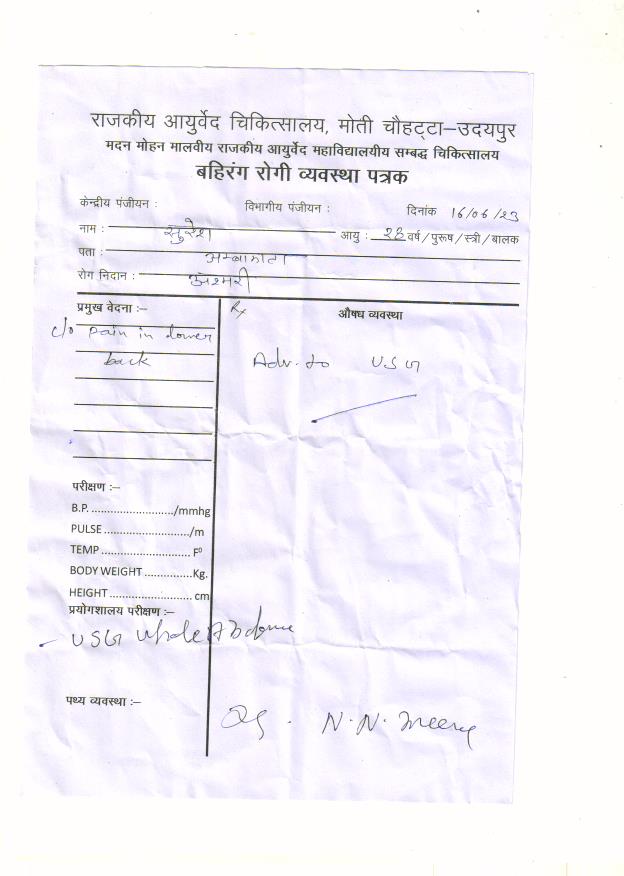 राजकीय आयुर्वेद चिकित्सालय, मोती चौहट्टा–उदयपुर
मदन मोहन मालवीय राजकीय आयुर्वेद महाविद्यालयीय सम्बद्ध चिकित्सालय
बहिरंग रोगी व्यवस्था पत्रक
केन्द्रीय पंजीयन : विभागीय पंजीयन : दिनांक 16/06/23
नाम : सुरेश आयु : 28 वर्ष/पुरूष/स्त्री/बालक
पता : अम्बामाता
रोग निदान : अश्मरी
प्रमुख वेदना :– Rx औषध व्यवस्था
c/o pain in lower
back Adv. to USG
परीक्षण :–
B.P. ........................../mmhg
PULSE .........................../m
TEMP ............................ F⁰
BODY WEIGHT ...............Kg.
HEIGHT .......................... cm
प्रयोगशालय परीक्षण :–
– USG whole Abdome
पथ्य व्यवस्था :–
N.N. Meena